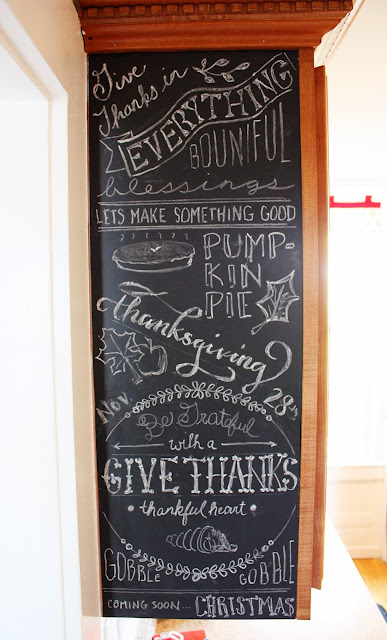 Give
Thanks in
EVERYTHING
BOUNIFUL
blessings
LETS MAKE SOMETHING GOOD
PUMP-
KIN
PIE
thanksgiving
Nov. 28th
Be Grateful
with a
GIVE THANKS
thankful heart
GOBBLE GOBBLE
COMING SOON... CHRISTMAS